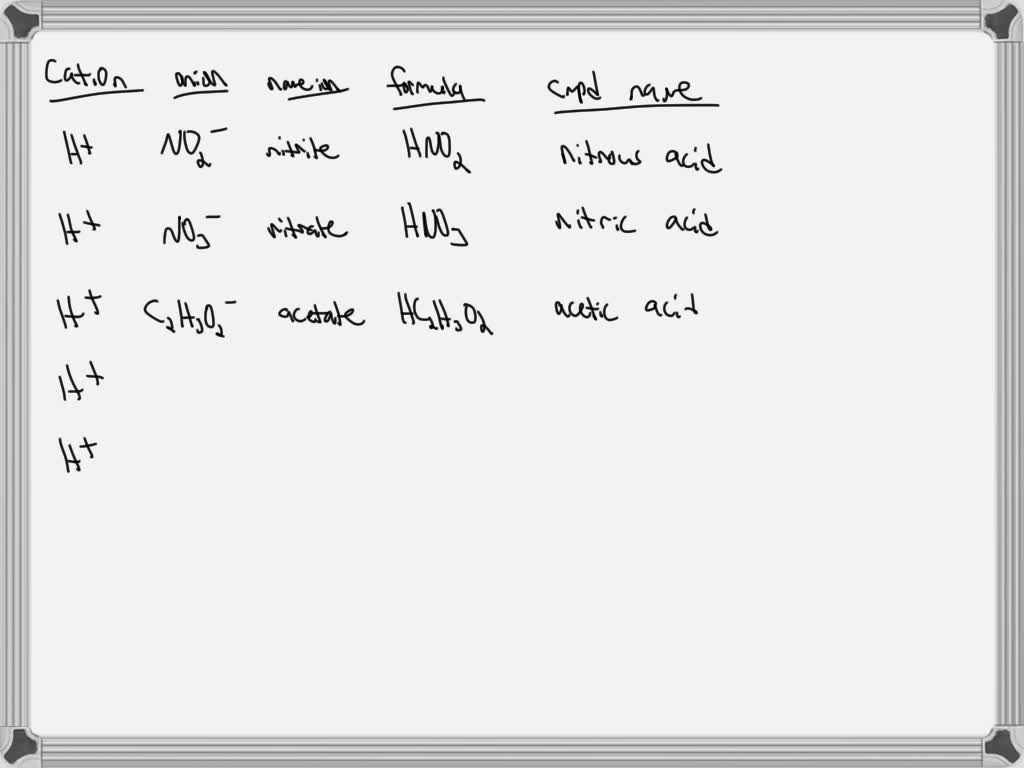 Cation anion name ion formula cmpd name
H⁺ NO₂⁻ nitrite HNO₂ nitrous acid
H⁺ NO₃⁻ nitrate HNO₃ nitric acid
H⁺ C₂H₃O₂⁻ acetate HC₂H₃O₂ acetic acid
H⁺
H⁺